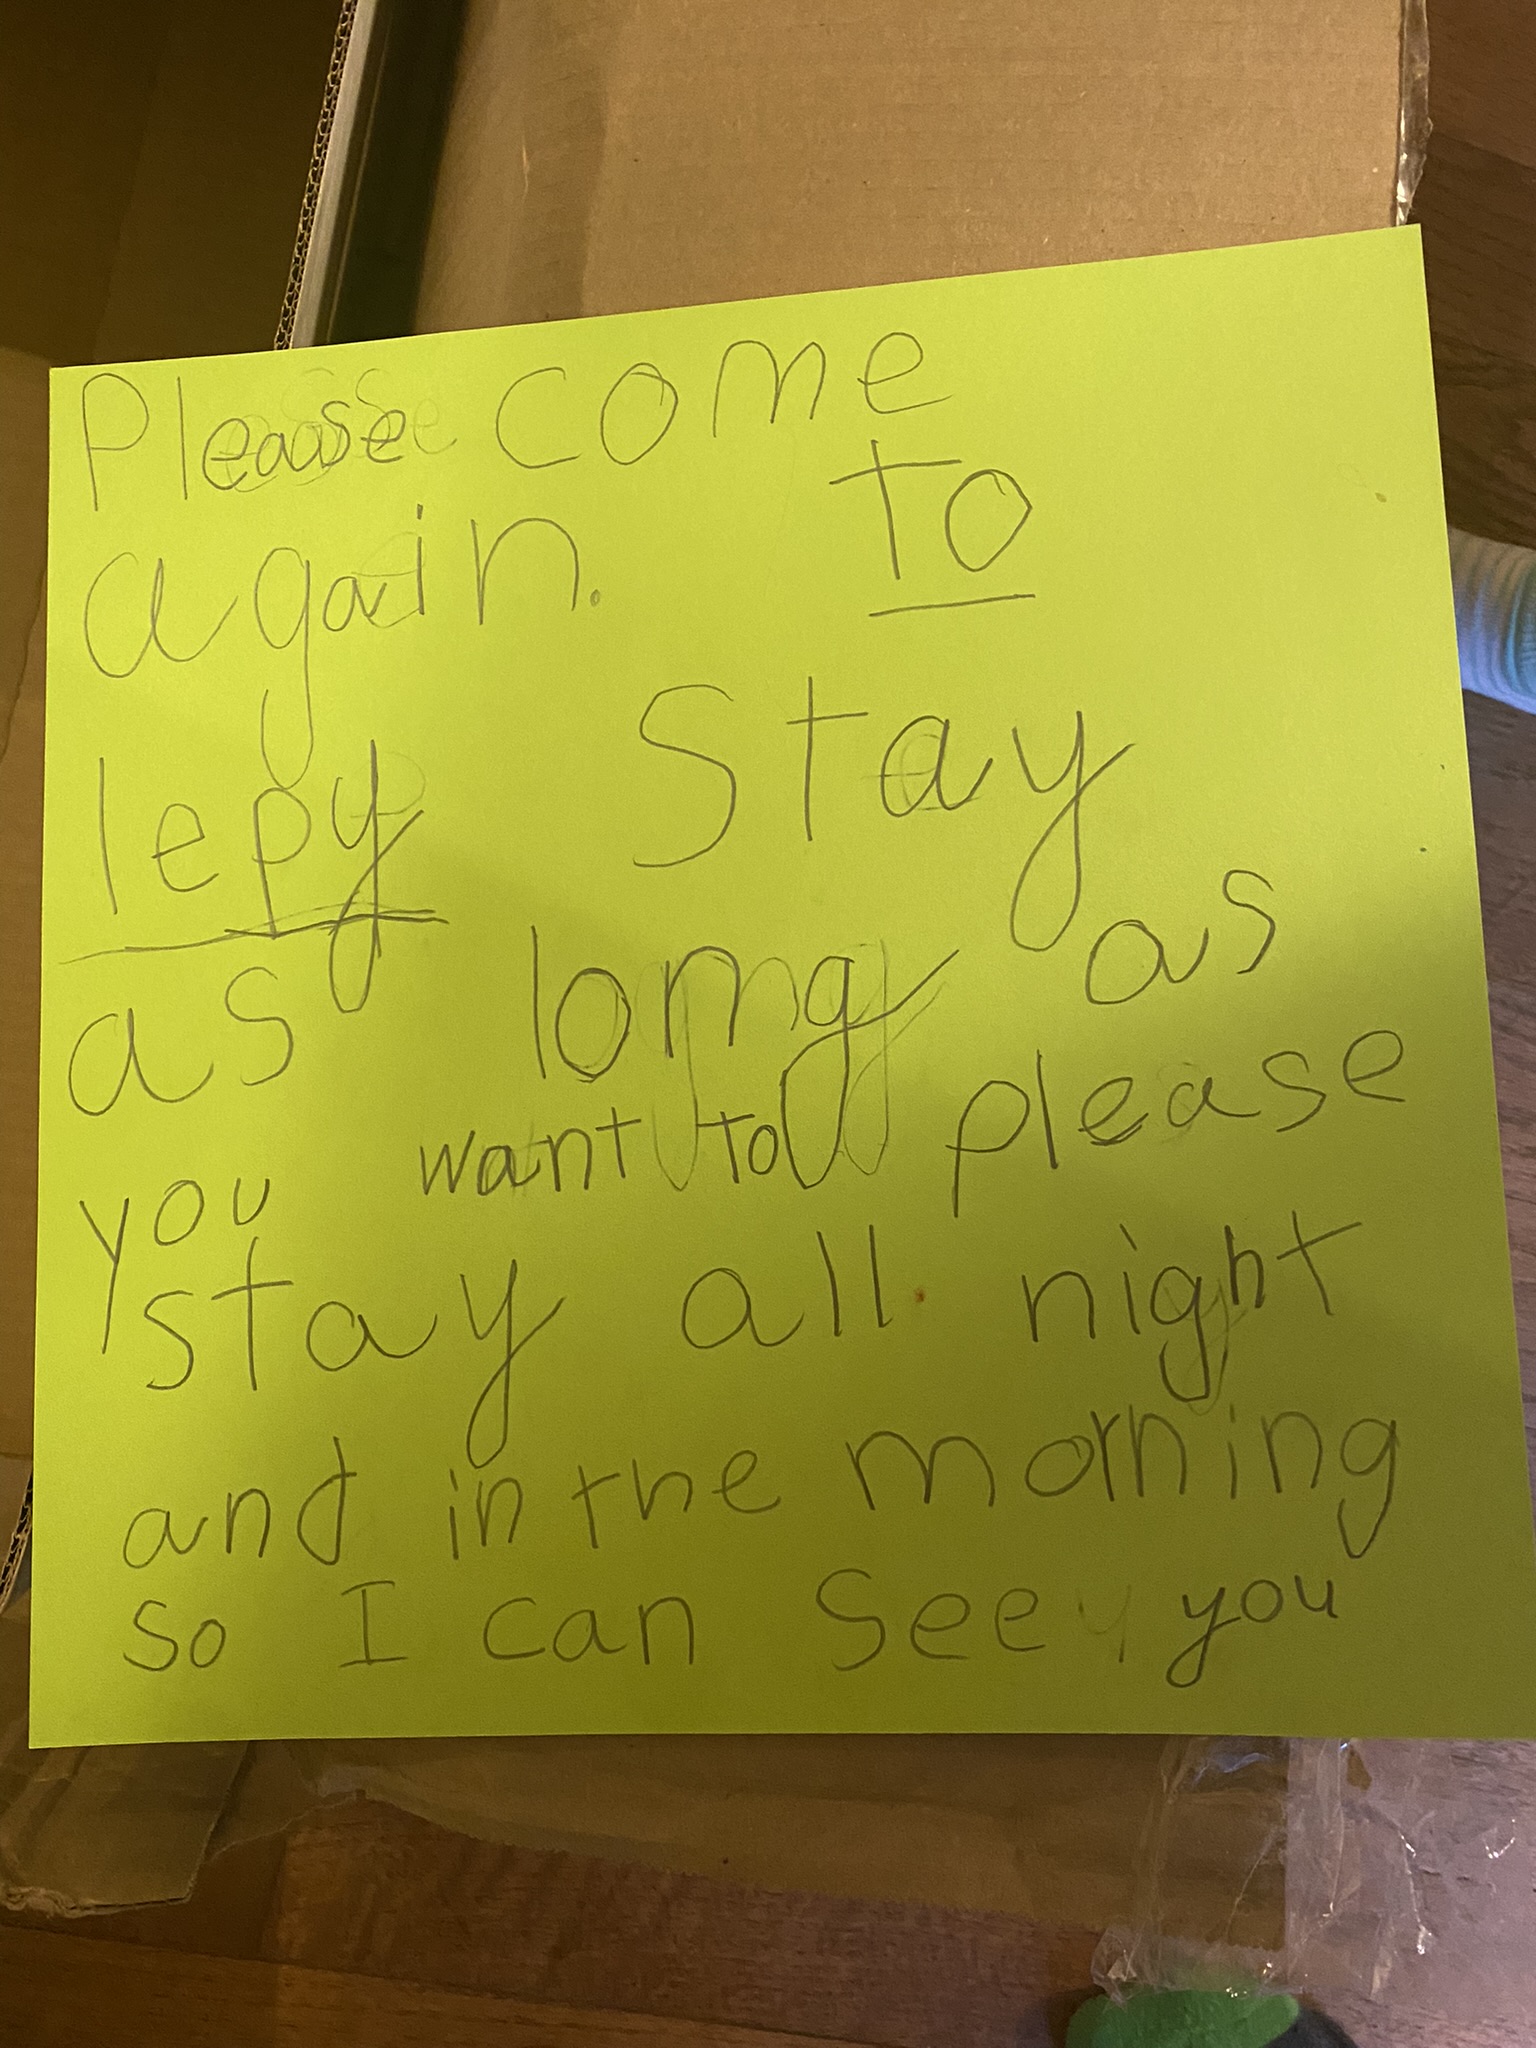 Please come
again. to
lepy stay
as long as
you want to please
stay all night
and in the morning
so I can see you